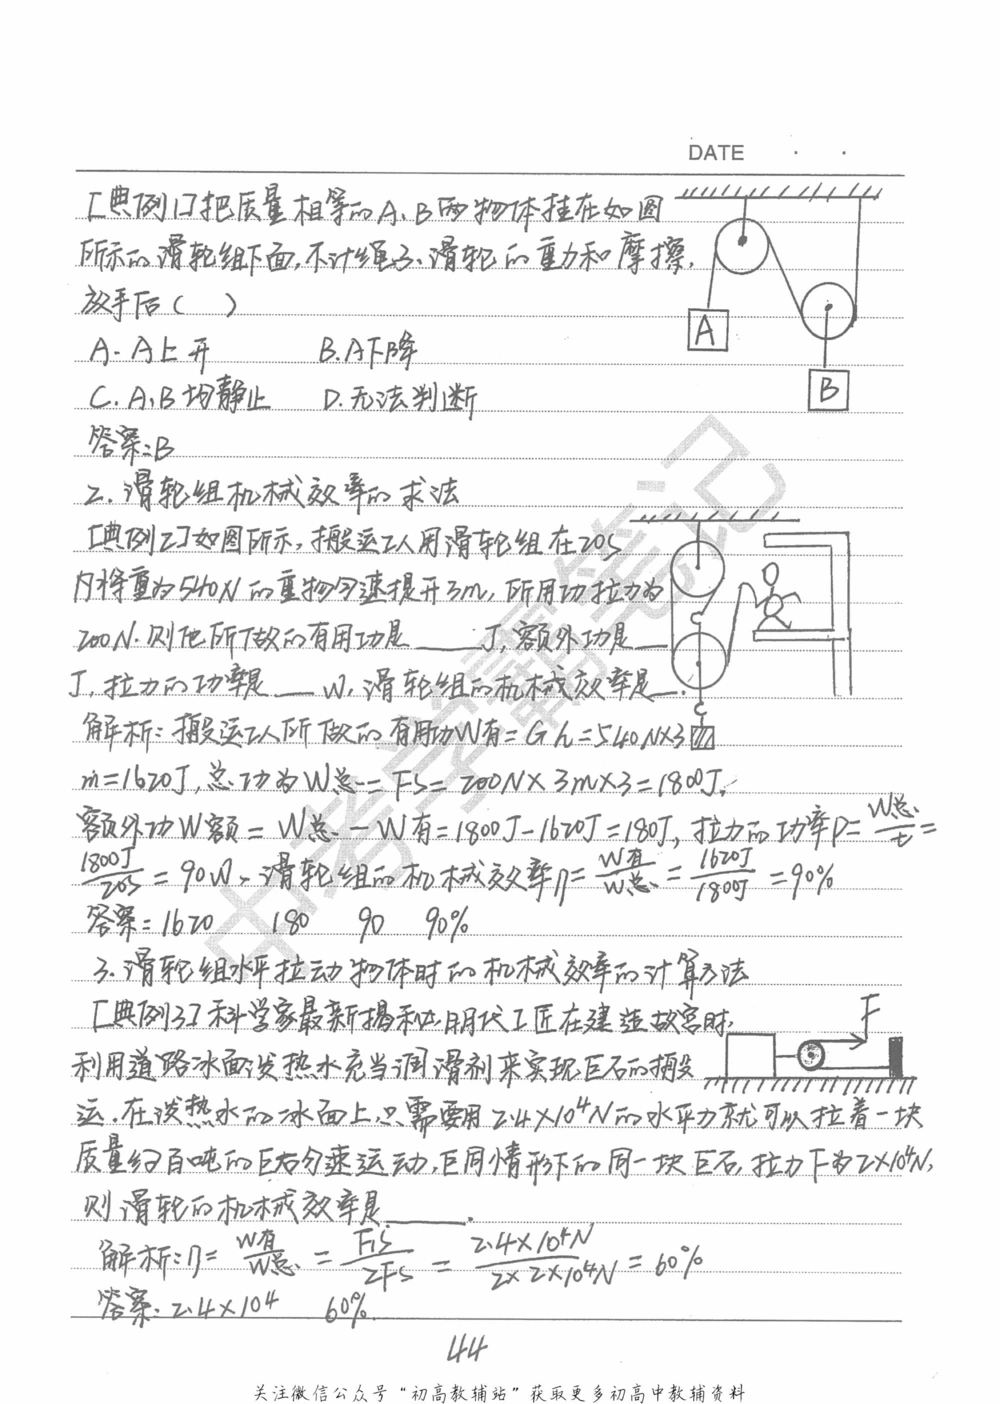 DATE · ·
[典例1]把质量相等的A、B两物体挂在如图
所示的滑轮组下面,不计绳子、滑轮的重力和摩擦,
放手后( )
A. A上升 B. A下降
C. A、B均静止 D. 无法判断
A
B
答案:B
2. 滑轮组机械效率的求法
[典例2]如图所示,搬运工人用滑轮组在20s
内将重为540N的重物匀速提升3m,所用功拉力为
200N.则他所做的有用功是____J,额外功是__
J,拉力的功率是__W,滑轮组的机械效率是__.
解析:搬运工人所做的有用功W有=Gh=540N×3
m=1620J,总功为W总=FS=200N×3m×3=1800J,
额外功W额=W总-W有=1800J-1620J=180J,拉力的功率P=W总/t=
1800J/20s=90W、滑轮组的机械效率η=W有/W总=1620J/1800J=90%
答案=1620 180 90 90%
3. 滑轮组水平拉动物体时的机械效率的计算方法
[典例3]科学家最新揭秘,明代工匠在建造故宫时,
F
利用道路冰面泼热水充当润滑剂来实现巨石的搬
运.在泼热水的冰面上只需要用2.4×10⁴N的水平力就可以拉着一块
质量约百吨的巨石匀速运动,同情形下的同一块巨石,拉力F为2×10⁴N,
则滑轮的机械效率是____.
解析:η=W有/W总=F₁S/2FS=2.4×10⁴N/2×2×10⁴N=60%
答案:2.4×10⁴ 60%.
44
关注微信公众号“初高教辅站”获取更多初高中教辅资料
中考学霸笔记